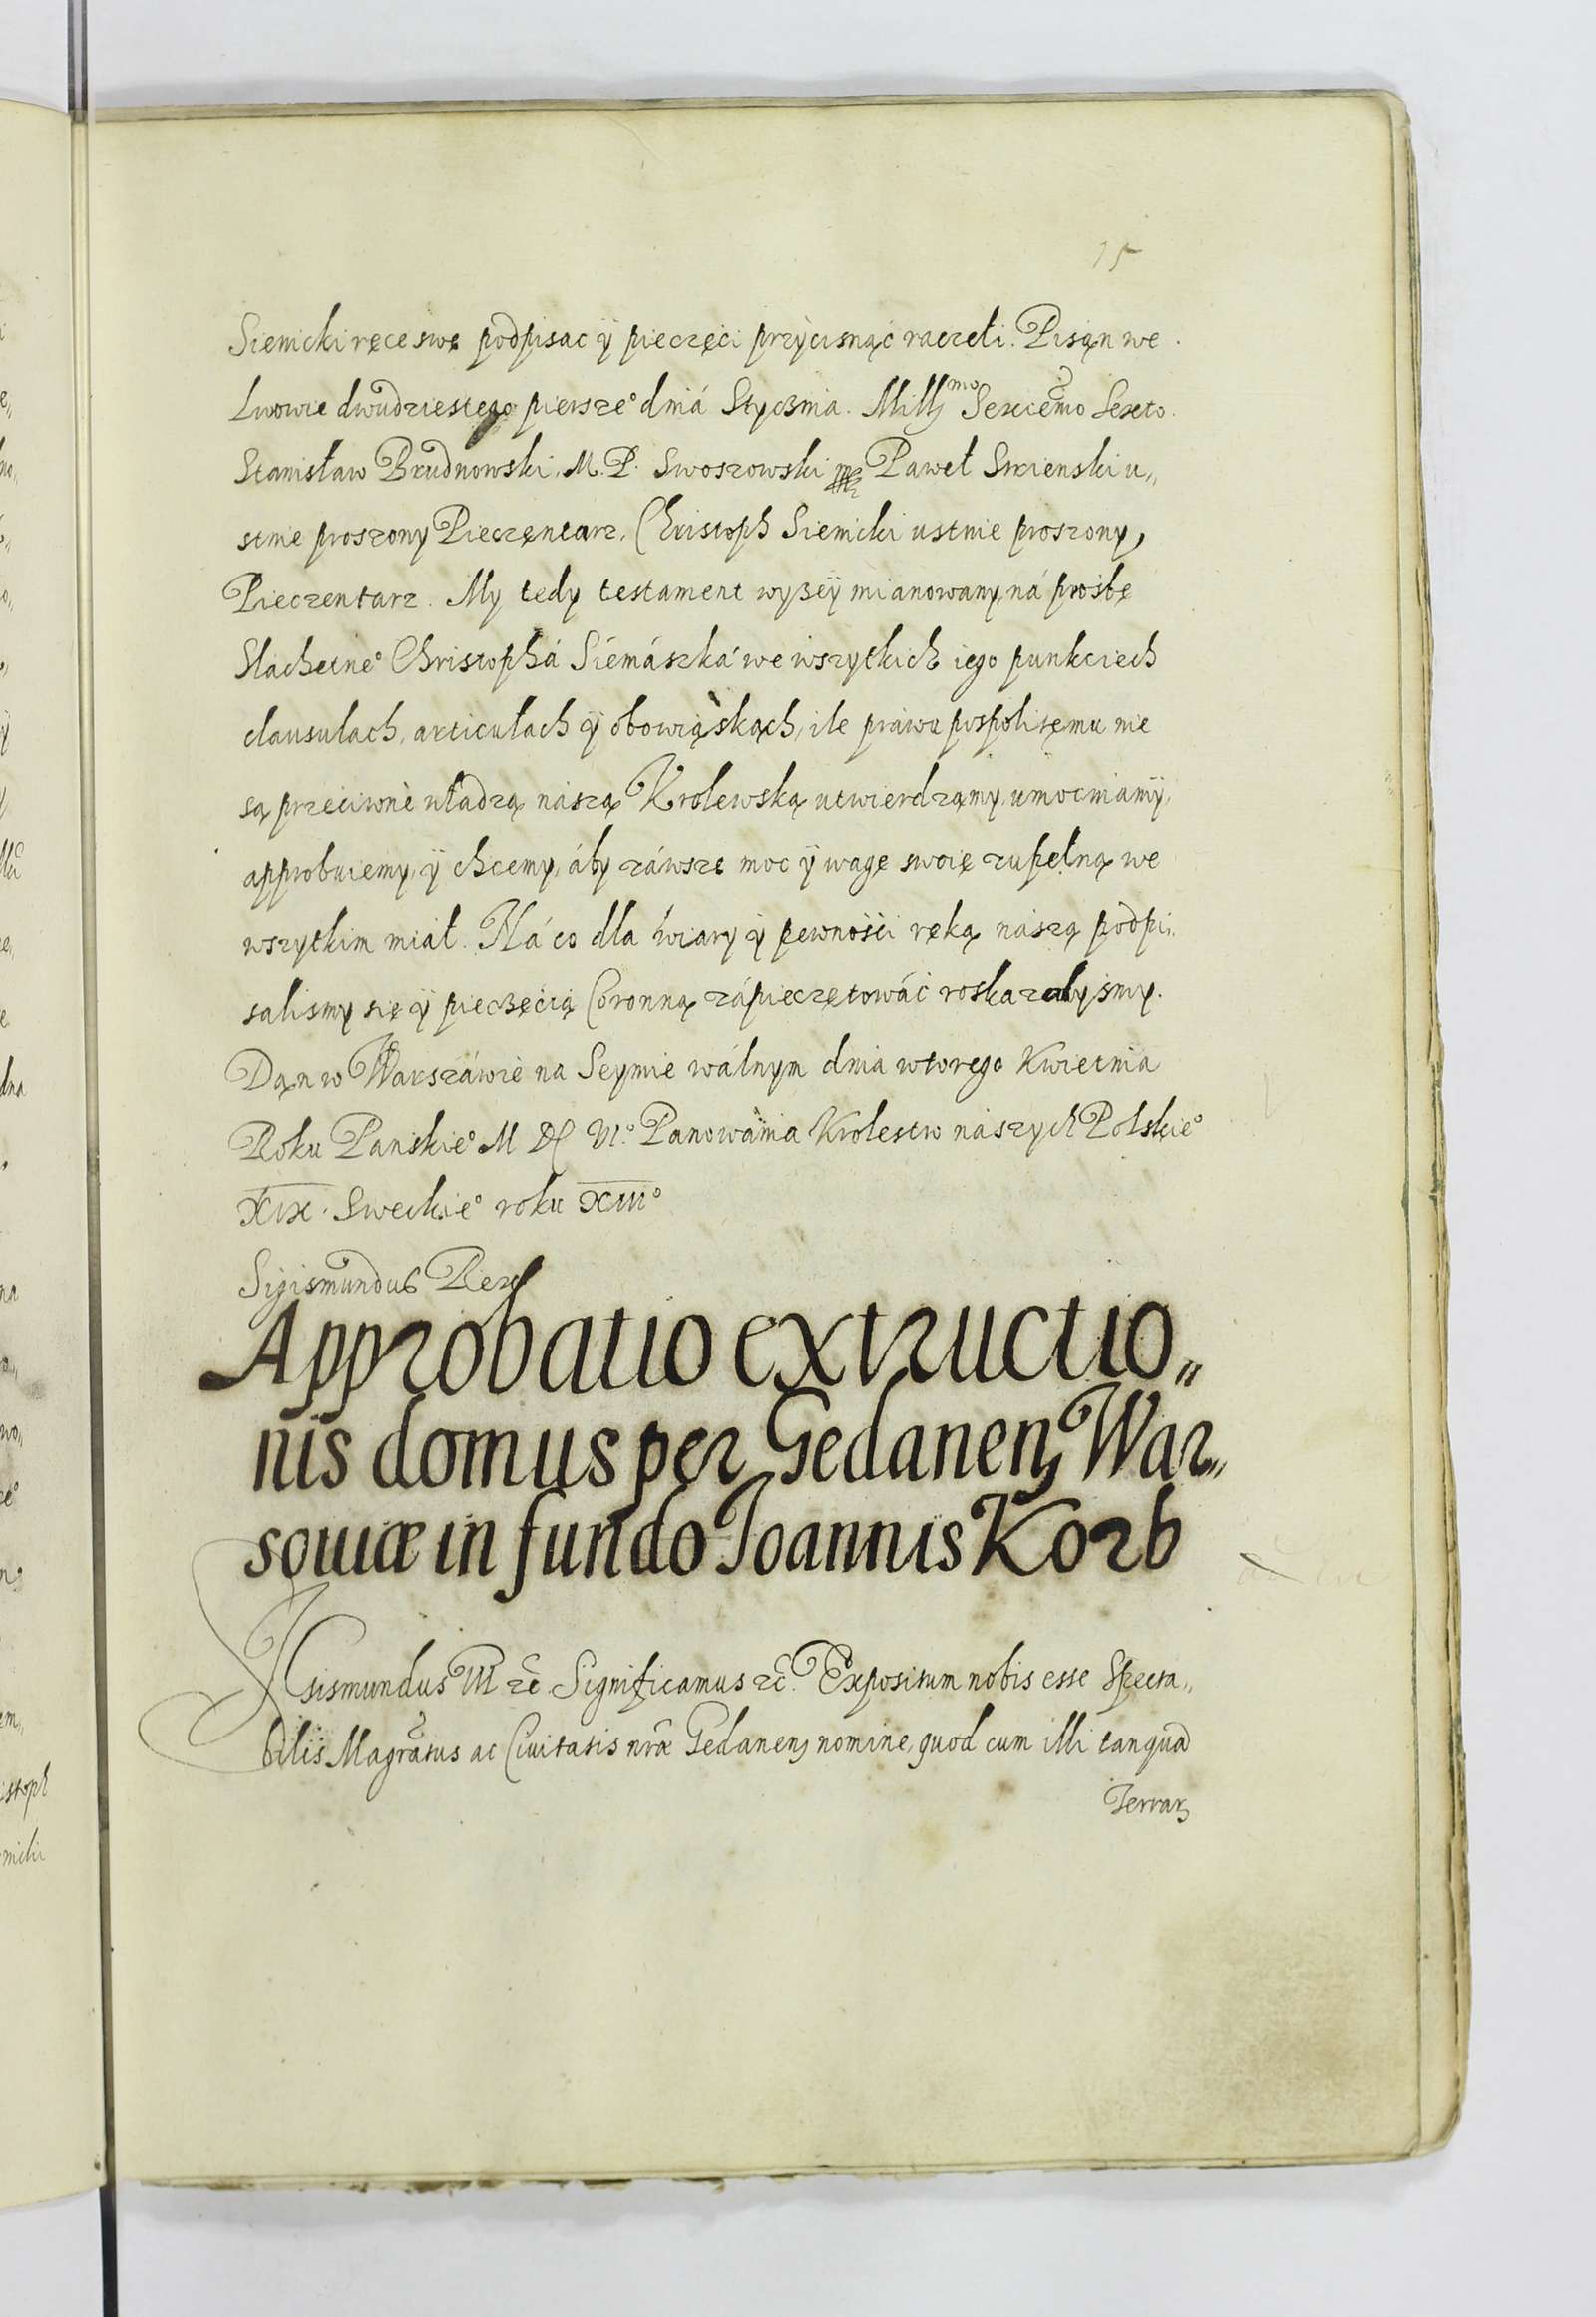 15
Siemicki ręce swe podpisac ÿ pieczęci przÿcisnąć raczeli. Pisąn we
Lwowie dwudziestego piersze° dniá Stycznia. Mill͞mo Sexcēmo Sexto.
Stanisław Brudnowski. M. P. Swoszowski mp Paweł Skrienski u„
stnie proszony Pieczęntarz, Christoph Siemicki ustnie proszony,
Pieczentarz. My tedy testament wyßeÿ mianowany, ná prośbę
Slachetne° Christophá Siémászká we wszytkich iego punkciech
clausulach, articułach ÿ obowiąskąch, ile práwu pospolitęmu nie
są przeciwnè władzą nászą Krolewską utwierdząmy, umocniamÿ,
approbuiemy, ÿ chcemy, áby záwsze moc ÿ wagę swoię zupełną we
wszytkim miał. Ná co dla wiary ÿ pewności ręką nászą podpi„
salismy się ÿ pieczęcią Coronną zápieczętowáć roskazalysmy.
Dąn w Warszáwiè na Seymie wálnym dnia wtorego Kwietnia
Roku Panskie° M DC VI.° Panowania Krolestw naszych Polskie°
XIX. Sweckie° roku XIII°
Sigismundus Rex
Approbatio extructio„
nis domus per Gedaneñ War„
souiæ in fundo Joannis Korb
Sigismundus III zc̄ Significamus zc̄. Expositum nobis esse Specta„
bilis Magr̃atus ac Ciuitatis nr̃æ Gedaneñ nomine, quod cum illi tanquā
Terrar̃